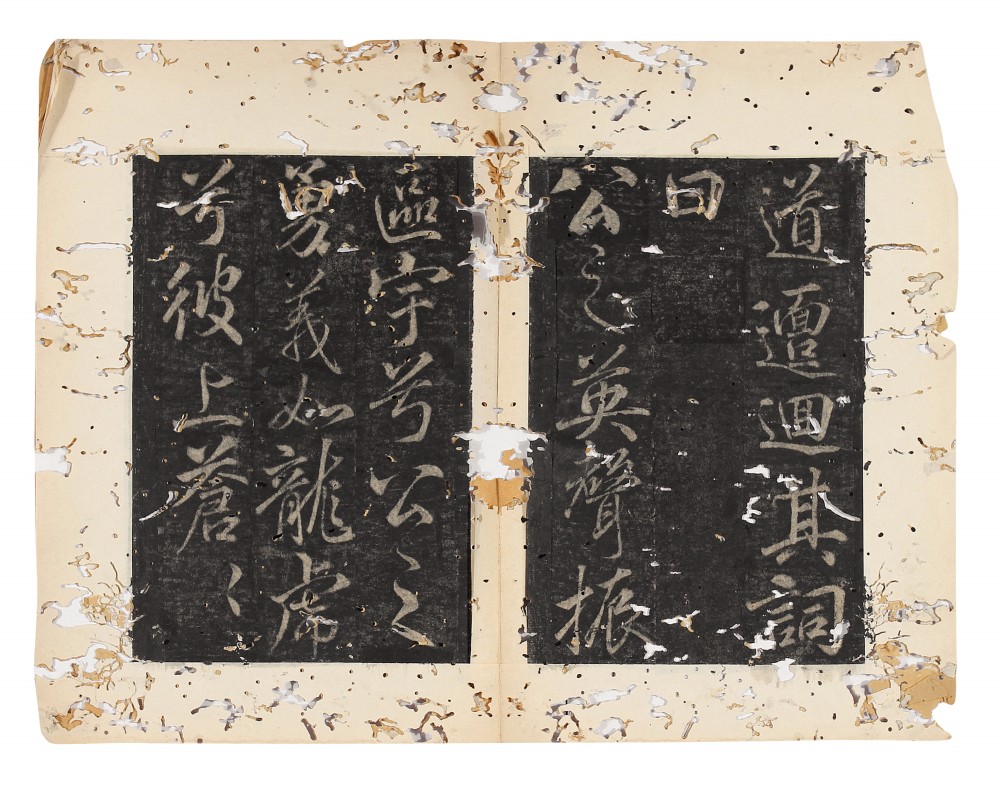 道邅迴其詞
曰
公之英聲振
區宇兮公之
勇義如龍虎
兮彼上蒼〻